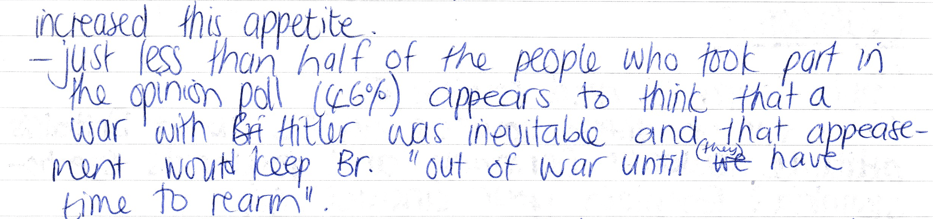 increased this appetite.
- just less than half of the people who took part in
the opinion poll (46%) appears to think that a
war with Hitler was inevitable and that appease-
ment would keep Br. "out of war until (they) we have
time to rearm".